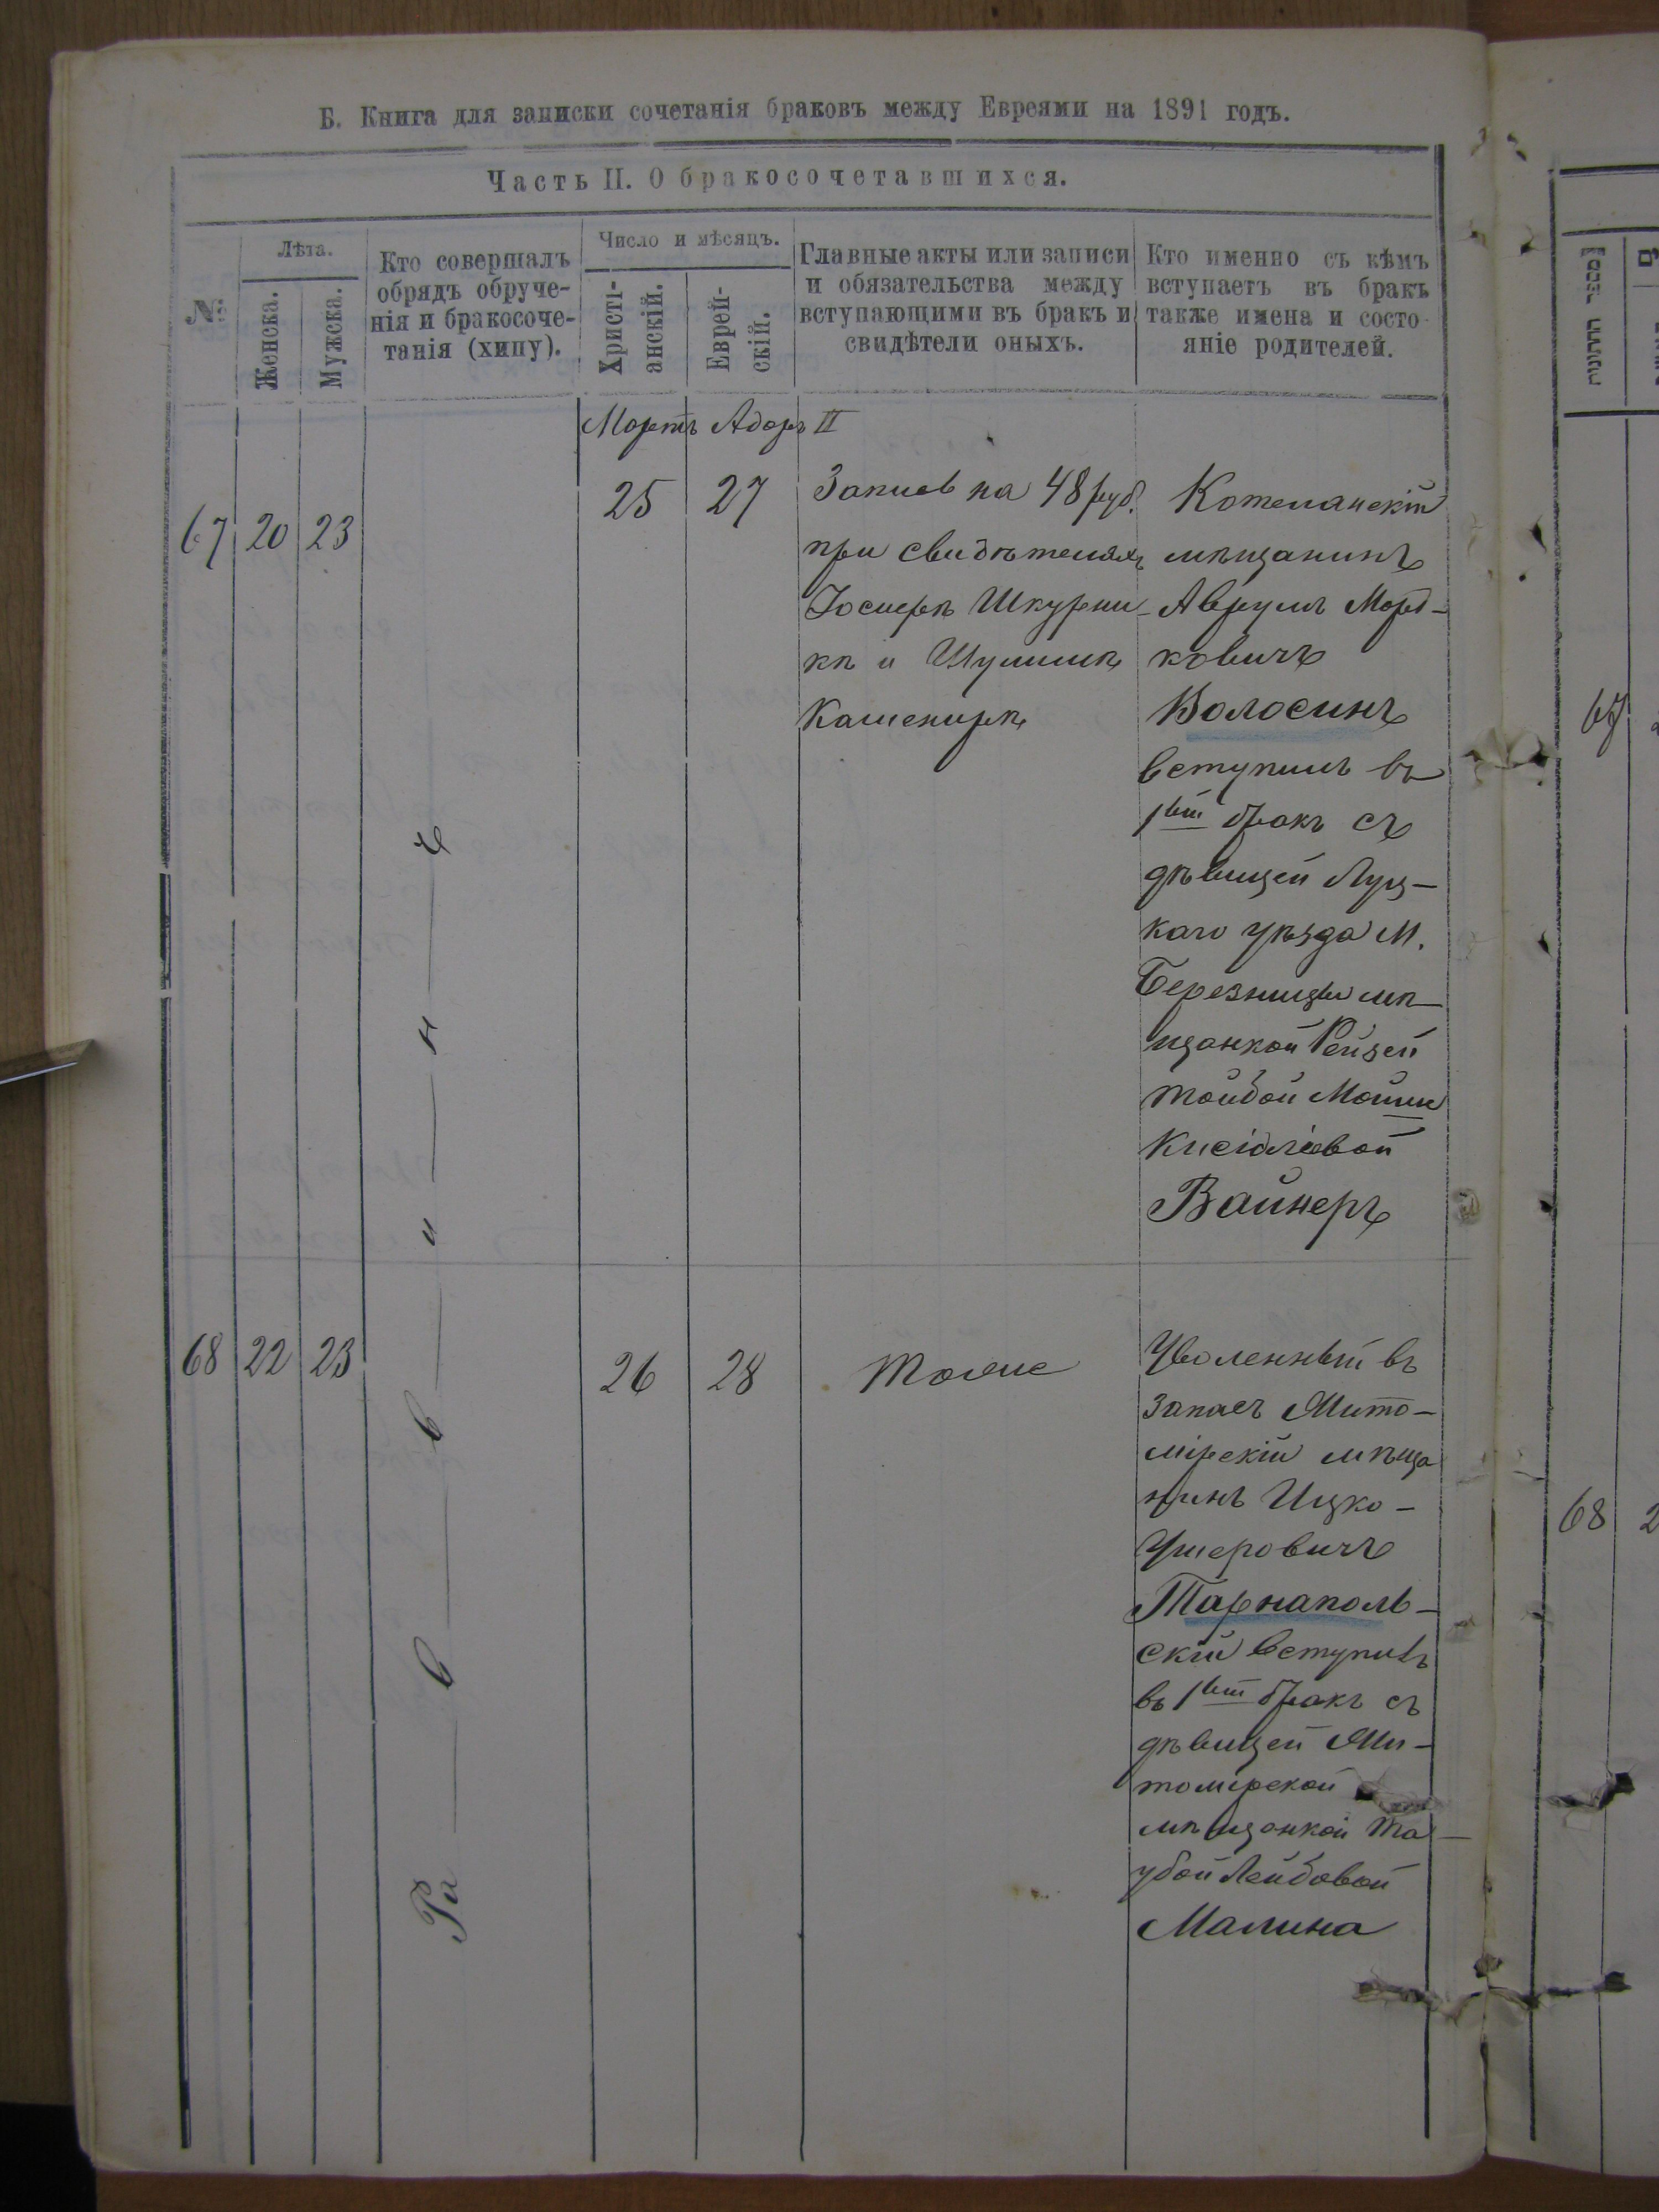 Б. Книга для записки сочетанія браковъ между Евреями на 1891 годъ.
Часть II. О бракосочетавшихся.
№
Лѣта.
Женска.
Мужска.
Кто совершалъ
обрядъ обруче-
нія и бракосоче-
танія (хипу).
Число и мѣсяцъ.
Христі-
анскій.
Еврей-
скій.
Главные акты или записи
и обязательства между
вступающими въ бракъ и
свидѣтели оныхъ.
Кто именно съ кѣмъ
вступаетъ въ бракъ
также имена и состо-
яніе родителей.
Мартъ Адаръ II
67 20 23
25 27
Запись на 48 руб.
при свидѣтеляхъ
Іосифѣ Шкурни-
кѣ и Шулимѣ
Кашенирѣ
мѣщанинъ
Аврумъ Морд-
ковичъ
Волосинъ
вступилъ въ
1вый бракъ съ
дѣвицей Луц-
каго уѣзда М.
Березницы мѣ-
щанкой Рейзей
Тойбой
Вайнеръ
Раввинъ
68 22 23
26 28
Тоже
Уволенный въ
запасъ Жито-
мірскій мѣща
нинъ Ицко-
Ушеровичъ
Тарнаполь-
скій вступилъ
въ 1вый бракъ съ
дѣвицей Жи-
томірской
мѣщанкой Та-
убой Лейбовой
Малина
מספר החתונות
67
68 2